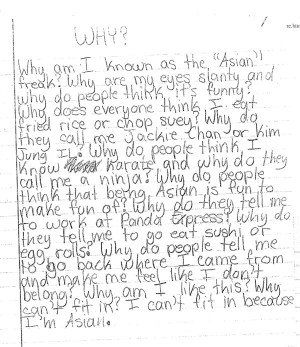 WHY?
Why am I known as the "Asian"
freak? Why are my eyes slanty and
why do people think it's funny?
Why does everyone think I eat
fried rice or chop suey? Why do
they call me Jackie Chan or Kim
Jung Il? Why do people think I
know karate and why do they
call me a ninja? Why do people
think that being Asian is fun to
make fun of? Why do they tell me
to work at Panda Express? Why do
they tell me to go eat sushi or
egg rolls? Why do people tell me
to go back where I came from
and make me feel like I don't
belong? Why am I like this? Why
can't I fit in? I can't fit in because
I'm Asian.